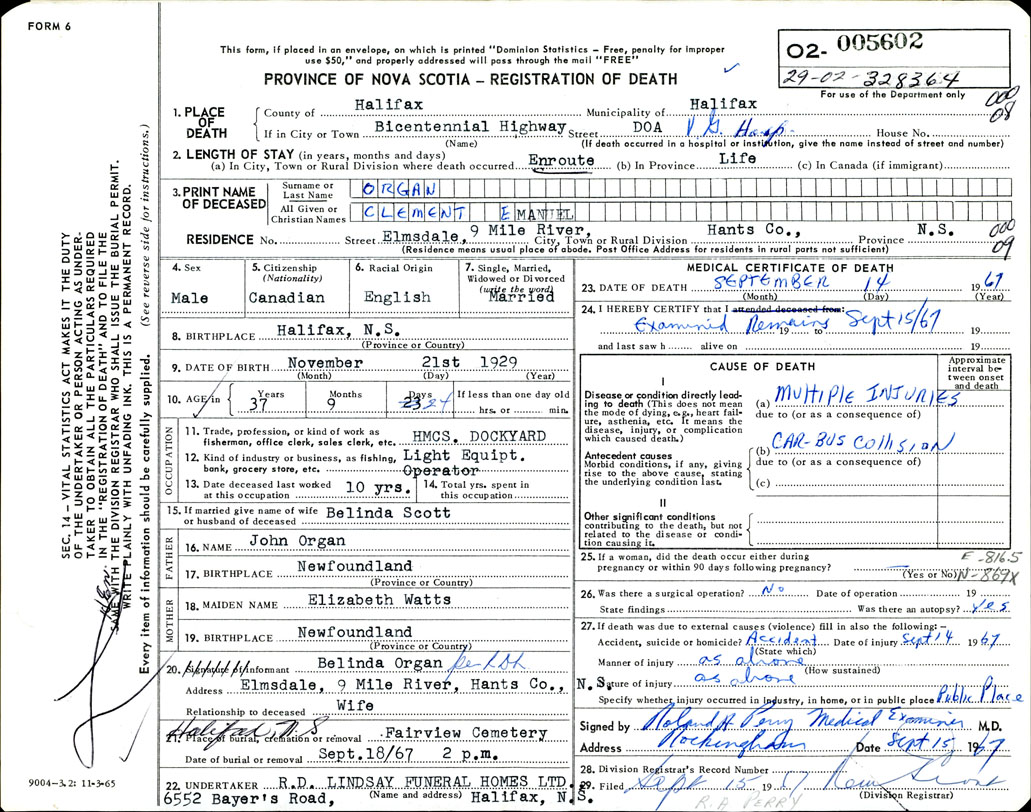 FORM 6
This form, if placed in an envelope, on which is printed "Dominion Statistics – Free, penalty for improper
use $50," and properly addressed will pass through the mail "FREE"
PROVINCE OF NOVA SCOTIA – REGISTRATION OF DEATH
02- 005602
29-02-328364
For use of the Department only
000
08
SEC. 14 – VITAL STATISTICS ACT MAKES IT THE DUTY
OF THE UNDERTAKER OR PERSON ACTING AS UNDER-
TAKER TO OBTAIN ALL THE PARTICULARS REQUIRED
IN THE "REGISTRATION OF DEATH" AND TO FILE THE
SAME WITH THE DIVISION REGISTRAR WHO SHALL ISSUE THE BURIAL PERMIT.
WRITE PLAINLY WITH UNFADING INK. THIS IS A PERMANENT RECORD.
Every item of information should be carefully supplied. (See reverse side for instructions.)
1. PLACE OF DEATH
County of Halifax Municipality of Halifax
If in City or Town Bicentennial Highway Street DOA V.G. Hosp. House No.
(Name) (If death occurred in a hospital or institution, give the name instead of street and number)
2. LENGTH OF STAY (in years, months and days)
(a) In City, Town or Rural Division where death occurred Enroute (b) In Province Life (c) In Canada (if immigrant)
3. PRINT NAME OF DECEASED
Surname or Last Name ORGAN
All Given or Christian Names CLEMENT EMANUEL
RESIDENCE No. Street Elmsdale, 9 Mile River, City, Town or Rural Division Hants Co., Province N.S.
(Residence means usual place of abode. Post Office Address for residents in rural parts not sufficient)
000
09
4. Sex Male
5. Citizenship (Nationality) Canadian
6. Racial Origin English
7. Single, Married, Widowed or Divorced (write the word) Married
8. BIRTHPLACE Halifax, N.S.
(Province or Country)
9. DATE OF BIRTH November 21st 1929
(Month) (Day) (Year)
10. AGE in Years 37 Months 9 Days 23 24 If less than one day old hrs. or min.
OCCUPATION
11. Trade, profession, or kind of work as fisherman, office clerk, sales clerk, etc. HMCS. DOCKYARD
12. Kind of industry or business, as fishing, bank, grocery store, etc. Light Equipt. Operator
13. Date deceased last worked at this occupation 10 yrs. 14. Total yrs. spent in this occupation
15. If married give name of wife or husband of deceased Belinda Scott
FATHER
16. NAME John Organ
17. BIRTHPLACE Newfoundland
(Province or Country)
MOTHER
18. MAIDEN NAME Elizabeth Watts
19. BIRTHPLACE Newfoundland
(Province or Country)
20. Signature of Informant Belinda Organ
Address Elmsdale, 9 Mile River, Hants Co., N.S.
Relationship to deceased Wife
Halifax, N.S
21. Place of burial, cremation or removal Fairview Cemetery
Date of burial or removal Sept.18/67 2 p.m.
22. UNDERTAKER R.D. LINDSAY FUNERAL HOMES LTD.
6552 Bayer's Road, (Name and address) Halifax, N.S.
9004-3.2: 11-3-65
MEDICAL CERTIFICATE OF DEATH
23. DATE OF DEATH SEPTEMBER 14 1967
(Month) (Day) (Year)
24. I HEREBY CERTIFY that I attended deceased from: Sept 15/67
Examined Remains 19 to 19
and last saw h alive on 19
CAUSE OF DEATH
Approximate interval between onset and death
I
Disease or condition directly leading to death (This does not mean the mode of dying, e.g., heart failure, asthenia, etc. It means the disease, injury, or complication which caused death.)
(a) MULTIPLE INJURIES
due to (or as a consequence of)
Antecedent causes
Morbid conditions, if any, giving rise to the above cause, stating the underlying condition last.
(b) CAR-BUS COllISION
due to (or as a consequence of)
(c)
II
Other significant conditions contributing to the death, but not related to the disease or condition causing it.
25. If a woman, did the death occur either during
pregnancy or within 90 days following pregnancy? (Yes or No)
E-816.5
N-869X
26. Was there a surgical operation? No Date of operation 19
State findings Was there an autopsy? Yes
27. If death was due to external causes (violence) fill in also the following:–
Accident, suicide or homicide? Accident Date of injury Sept 14 1967
(State which)
Manner of injury as above
(How sustained)
Nature of injury as above
Specify whether injury occurred in industry, in home, or in public place Public Place
Signed by Roland H Perry Medical Examiner M.D.
Address Rockingham Date Sept 15 1967
28. Division Registrar's Record Number
29. Filed Sept 15 19
(Division Registrar)
R.A PERRY